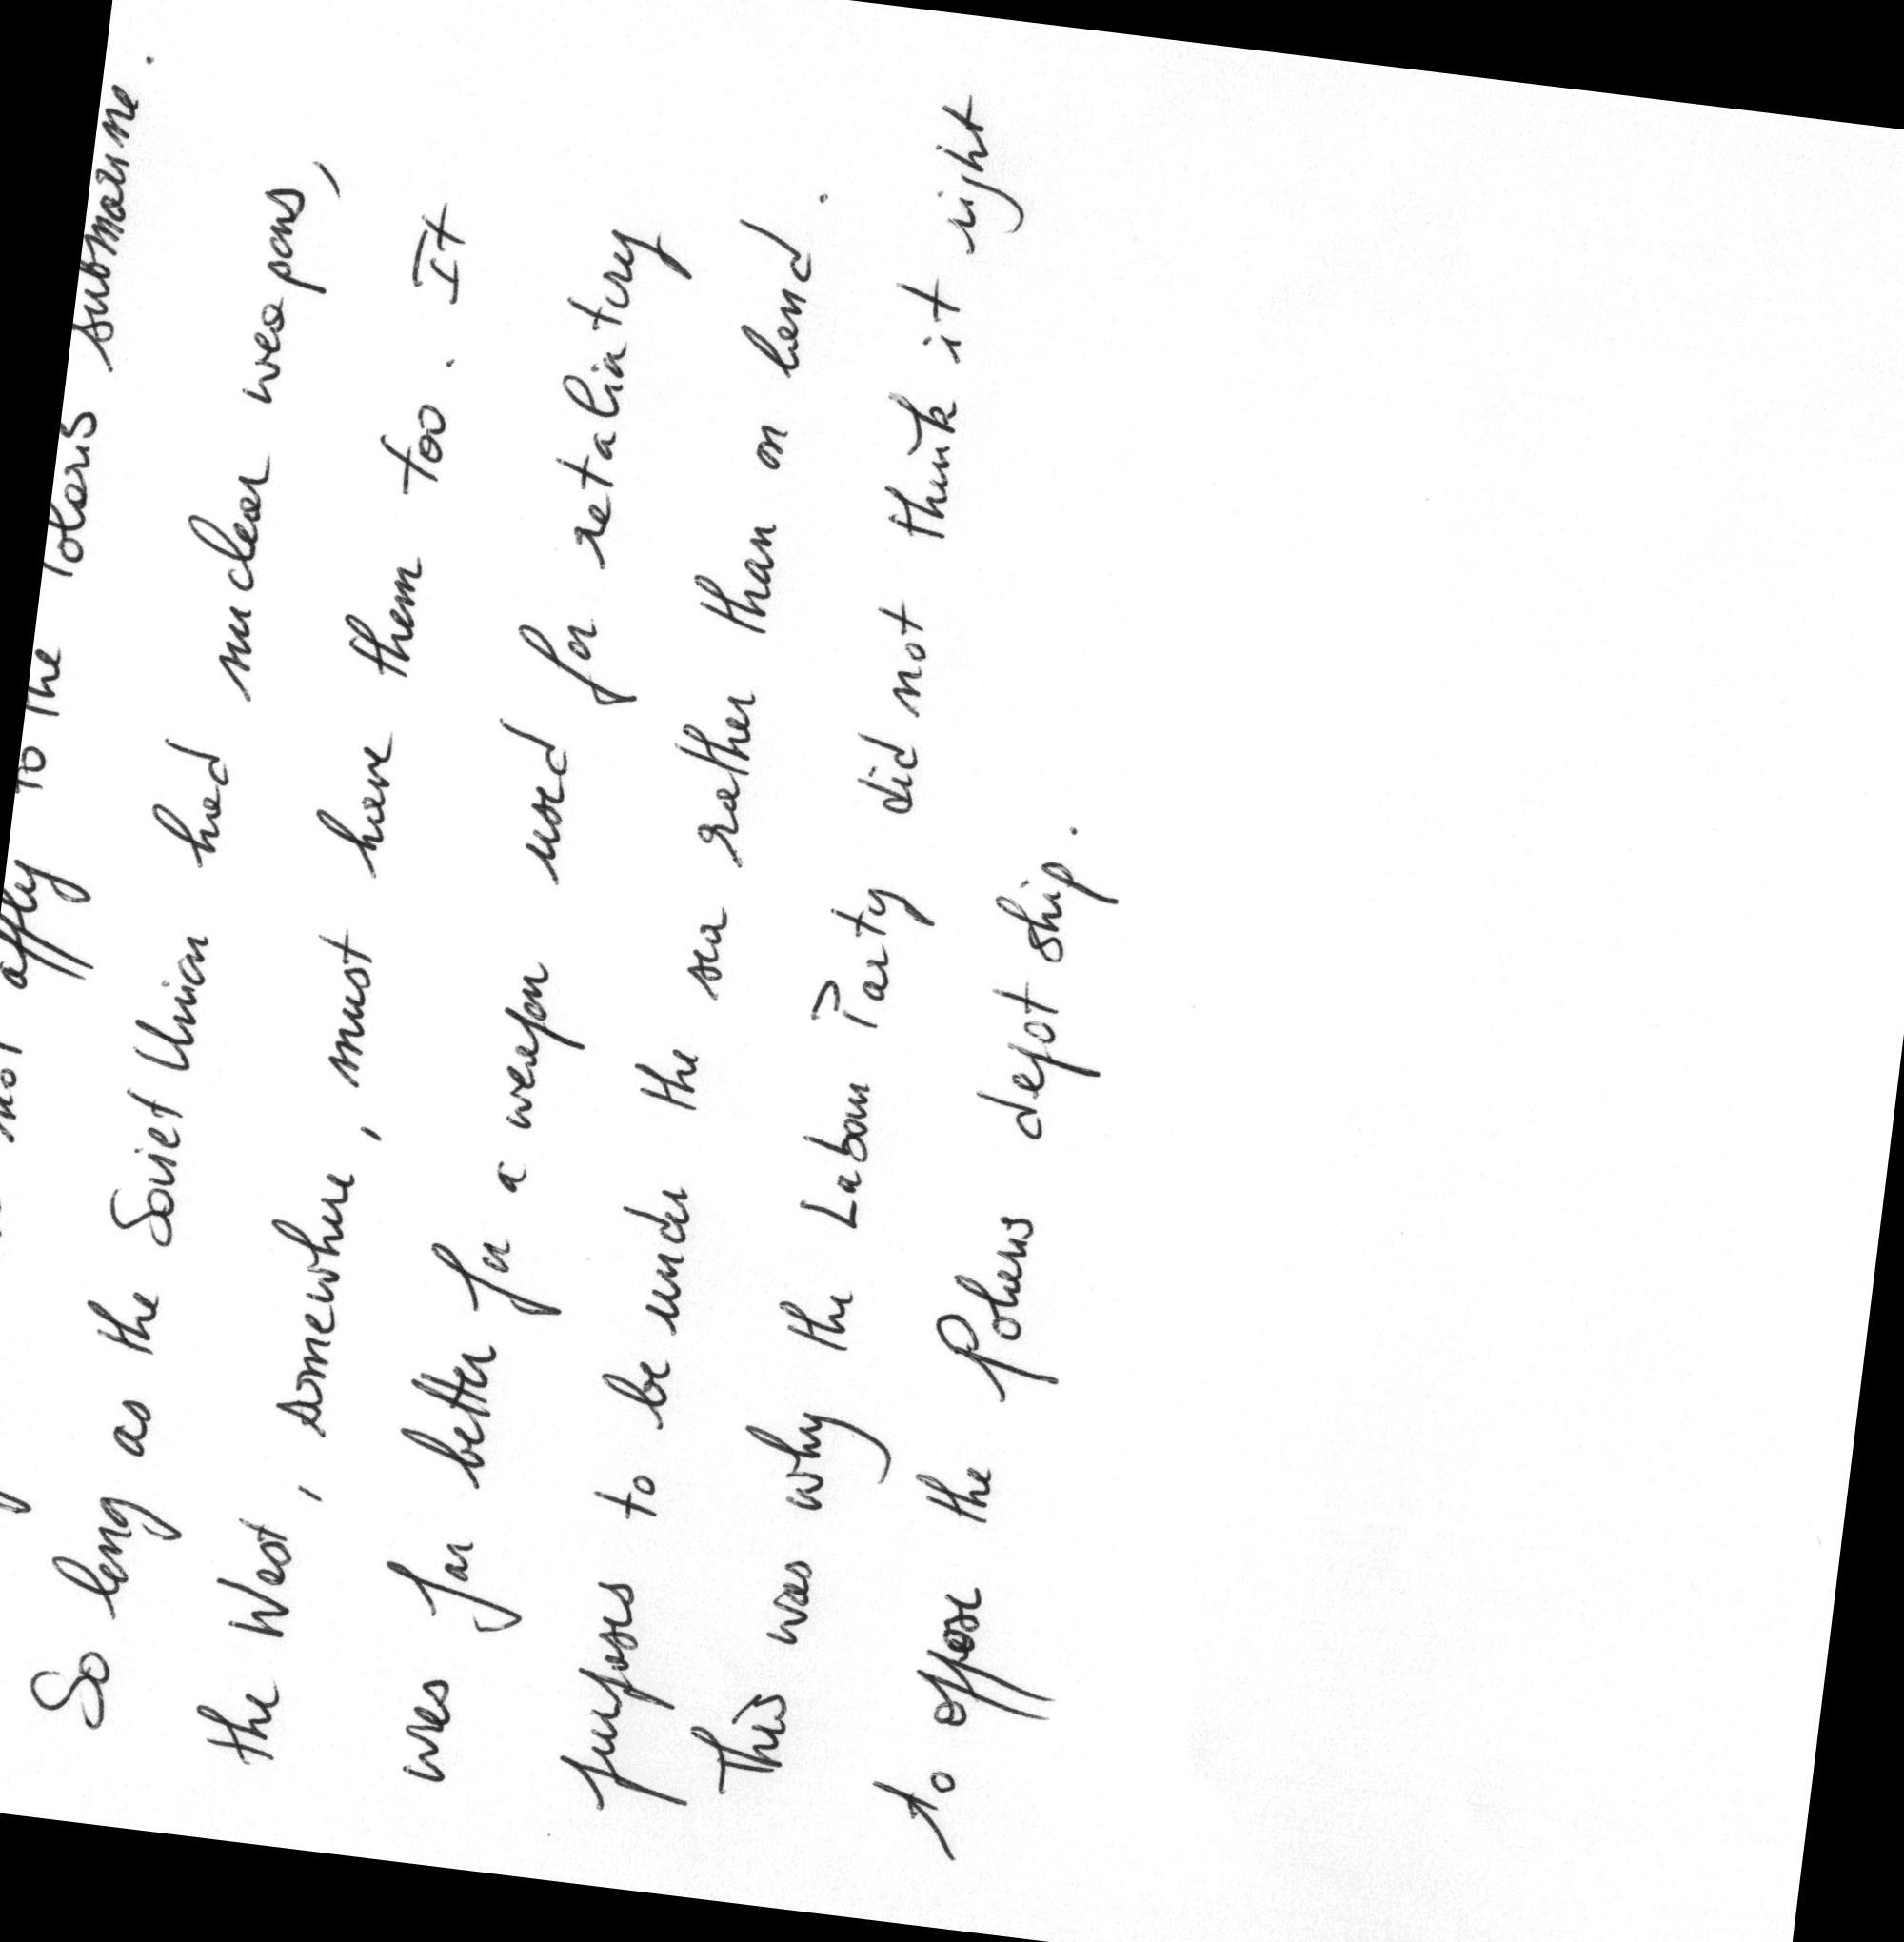 not apply to the Polaris submarine.
So long as the Soviet Union had nuclear weapons,
the West, somewhere, must have them too. It
was far better for a weapon used for retaliatory
purposes to be under the sea rather than on land.
This was why the Labour Party did not think it right
to oppose the Polaris depot ship.